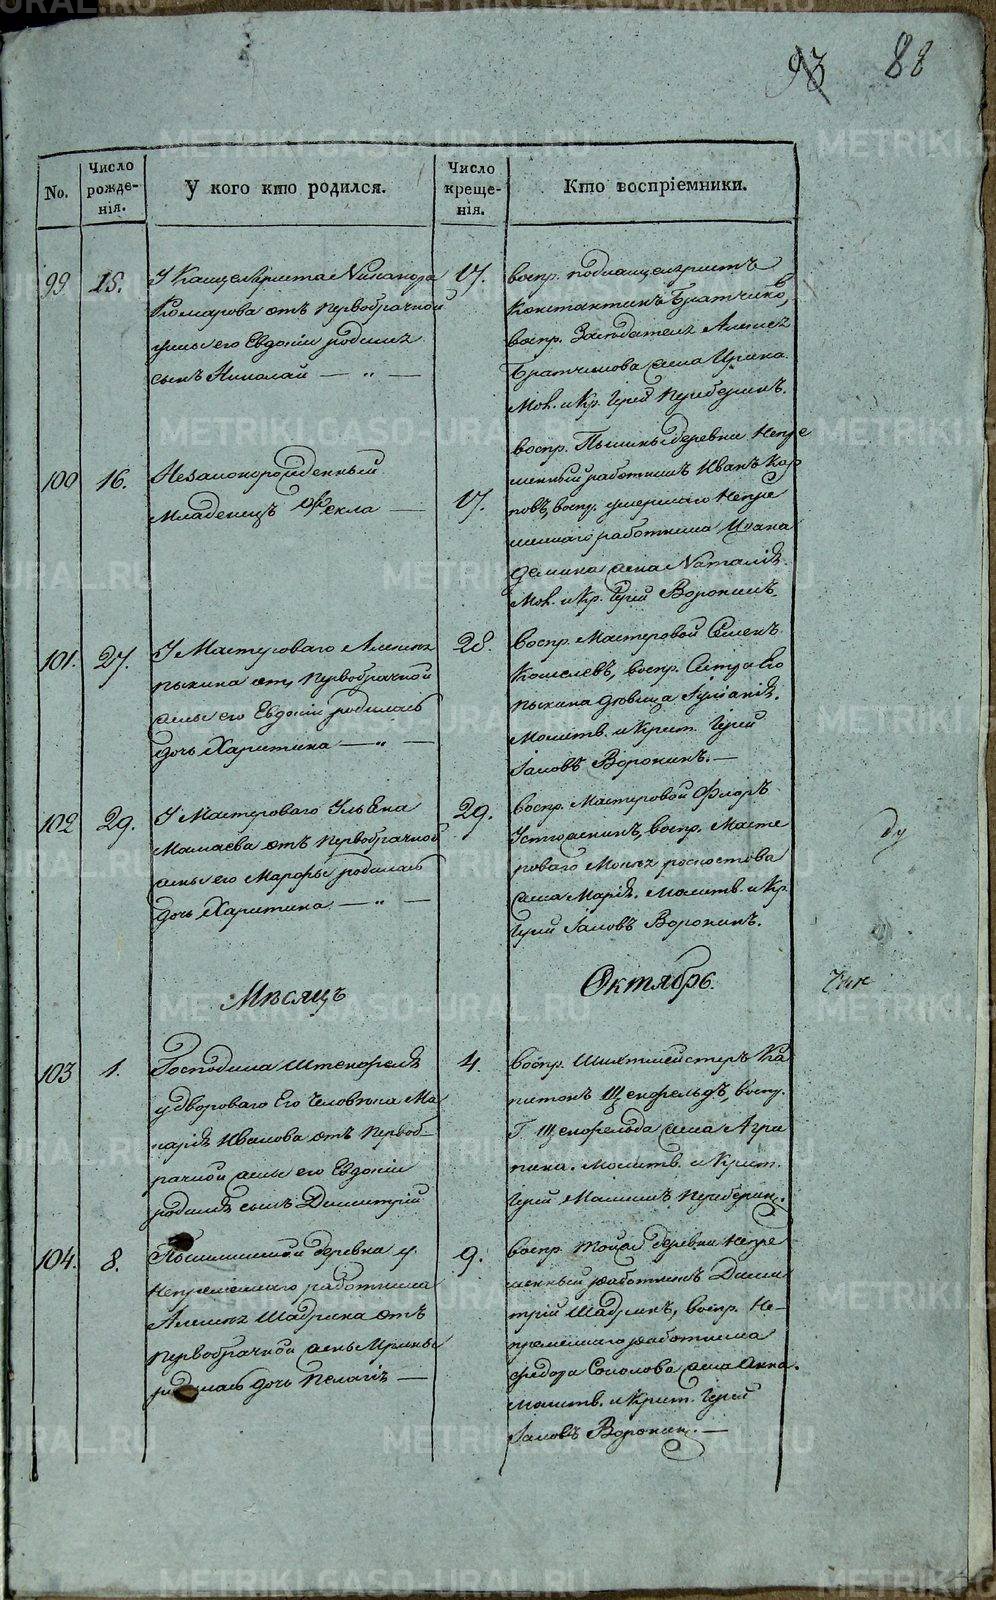 93 88
No.
Число рожденія.
У кого кто родился.
Число крещенія.
Кто воспріемники.
99 15.
У Канцеляриста Никанора
Комарова отъ первобрачной
жены его Евдокіи родился
сынъ Николай — „ —
17.
воспр. подканцеляристъ
Константинъ Братчиковъ,
воспр. Засѣдателя Алексѣя
Братчикова жена Ирина.
Мол. и Кр. Іерей
100 16.
Незаконорожденный
Младенецъ Фекла —
17.
воспр. Пышминской деревни Непре
менный работникъ Иванъ Кар
повъ, воспр. умершаго Непре
меннаго работника
жена Наталія.
Мол. и Кр. Іерей Воронинъ.
101. 27.
У Мастероваго Алексѣя
Пыкина отъ первобрачной
жены его Евдокіи родилась
дочь Харитина — „ —
28.
воспр. Мастеровой Семенъ
Кошелевъ, воспр. Сестра Его
Пыкина дѣвица
Молитв. и Крест. Іерей
Іаковъ Воронинъ. —
102 29.
У Мастероваго Ульяна
Мамаева отъ первобрачной
жены его Марфы родилась
дочь Харитина — „ —
29.
воспр. Мастеровой Флоръ
воспр. Масте
роваго
жена Марія. Молитв. и Кр.
Іерей Іаковъ Воронинъ.
Мѣсяцъ Октябрь.
103 1.
Господина Штенфельдъ
у двороваго Его Человѣка Ма
карія Иванова отъ первоб-
рачной жены его Евдокіи
родился сынъ Димитрій
4.
воспр. Шихтмейстеръ Ка
питонъ Щенфельдъ, воспр.
Г. Щенфельда жена Агри
пина. Молитв. и Крест.
Іерей Максимъ
104. 8.
Пышминской деревни у
Непременнаго работника
Алексѣя Шадрина отъ
первобрачной жены Ирины
родилась дочь Пелагія —
9.
воспр. той же деревни Непре
менный работникъ Дими
трій Шадринъ, воспр. Не-
пременнаго работника
Федора Соколова жена Анна.
Молитв. и Крест. Іерей
Іаковъ Воронинъ. —
METRIKI.GASO-URAL.RU